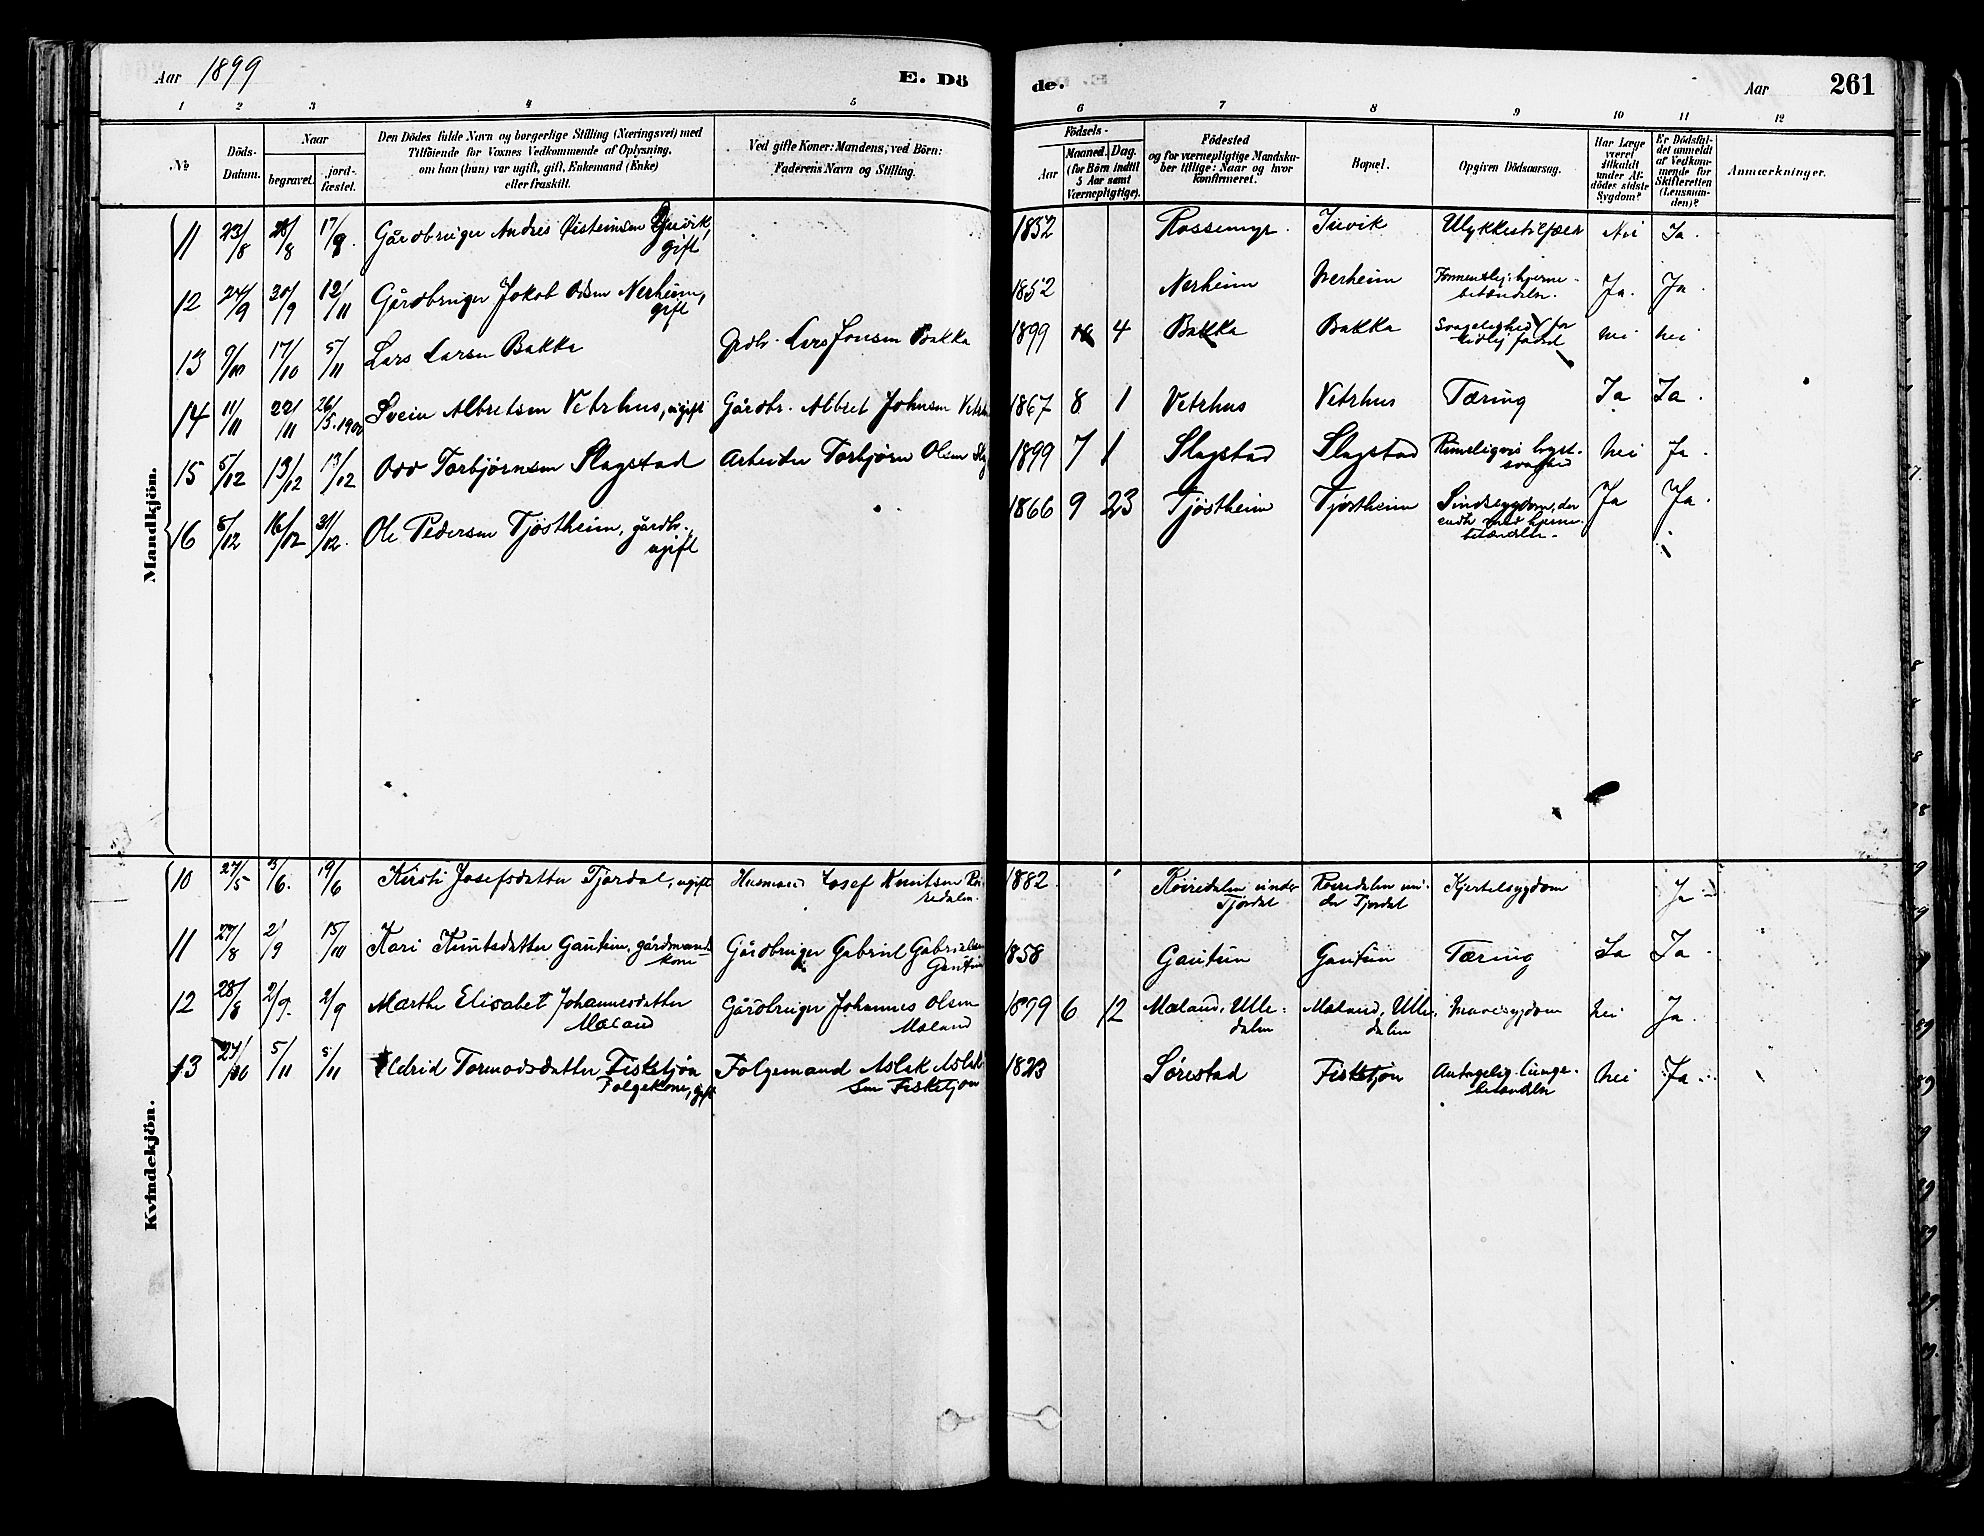 Aar 1899
E. Dö
de.
Aar
261
1 2 3 4 5 6 7 8 9 10 11 12
No
Döds-
Datum.
Naar
begravet.
jord-
fæstet.
Den Dödes fulde Navn og borgerlige Stilling (Næringsvei) med
Tilföiende for Voxnes Vedkommende af Oplysning,
om han (hun) var ugift, gift, Enkemand (Enke)
eller fraskilt.
Ved gifte Koner: Mandens; ved Börn:
Faderens Navn og Stilling.
Födsels-
Aar
Maaned. Dag.
(for Börn indtil
5 Aar samt
Værnepligtige).
Födested
og for værnepligtige Mandska-
ber tillige: Naar og hvor
konfirmeret.
Bopæl.
Opgiven Dödsaarsag.
Har Læge
været
tilkaldt
under Af-
dödes sidste
Sygdom?
Er Dödsfal-
det anmeldt
af Vedkom-
mende for
Skifteretten
(Lensman-
den)?
Anmærkninger.
Mandkjön.
11 23/8 28/8 17/9. Gårdbruger Andres Øisteinsen Juvik, 1852 Rossemyr. Juvik Ulykkestilfælde Nei Ja.
gift
12 24/9 30/9 12/11 Gårdbruger Jakob Odsen Nerheim, 1852 Nerheim Nerheim Formentlig: hjerne- Ja. Ja.
gift betændelse.
13 9/10 17/10 5/11 Lars Larsen Bakka Grdbr. Lars Jonsen Bakka 1899 10 4 Bakka Bakka Svagelighed (for nei nei
tidlig født)
14 11/11 22/11 26/5.1900 Svein Albretsen Vetrhus, ugift Gårdbr. Albret Johnsen Vetrh 1867 8 1 Vetrhus Vetrhus Tæring Ja Ja.
15 5/12 13/12 13/12 Odd Torbjørnsen Slagstad Arbeider Torbjørn Olsen Slg 1899 7 1 Slagstad Slagstad Rimeligvis bryst- Nei Ja.
svaghed
16 8/12 16/12 31/12. Ole Pedersen Tjøstheim, gårdbr., 1866 9 23 Tjøstheim Tjøstheim Sindssygdom, der Ja Ja.
ugift endte med hjerne-
betændelse.
Kvindekjön.
10 27/5 3/6. 19/6 Kirsti Josefsdatter Tjørdal, ugift Husmand Josef Knutsen Røi- 1882. Røiredalen under Røiredalen un- Kjertelsygdom Ja.
redalen. Tjørdal der Tjørdal
11 27/8 2/9 15/10 Kari Knutsdatter Gautun, gårdmands- Gårdbruger Gabriel Gabrielsen 1858 Gautun Gautun Tæring Ja Ja.
kone Gautun
12 28/8 2/9. 2/9 Marthe Elisabet Johannesdatter Gårdbruger Johannes Olsen 1899 6 12 Mæland, Ulle- Mæland, Ulle- Mavesygdom Nei Ja.
Mæland Mæland dalen dalen
13 27/10 5/11 5/11 Eldrid Tormodsdatter Fisketjøn Folgemand Aslak Aslak- 1823 Sørestad Fisketjøn Antagelig lunge- Nei Ja.
Folgekone, gift sen Fisketjøn betændelse